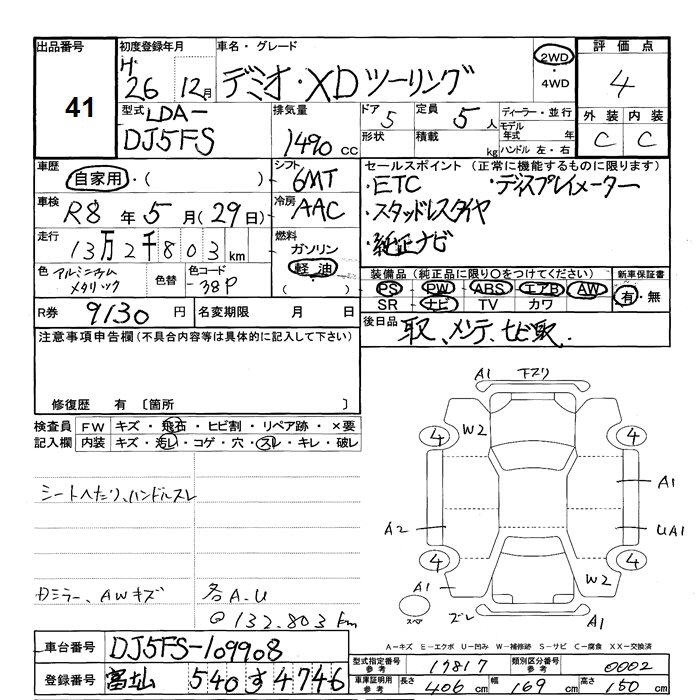 出品番号 初度登録年月 車名・グレード 評価点
41
H26 12月 デミオ・XDツーリング 2WD・4WD 4
型式 LDA-DJ5FS 排気量 1490 cc ドア 5 定員 5人 ディーラー・並行
形状 積載 kg モデル年式 年 ハンドル 左・右
外装 内装
C C
車歴 自家用・( ) シフト 6MT セールスポイント (正常に機能するものに限ります)
・ETC ・ディスプレイメーター
・スタッドレスタイヤ
・純正ナビ
車検 R8年5月(29日) 冷房 AAC
走行 13万2千803km 燃料 ガソリン 軽油 ( )
色 アルミニウムメタリック 色替 色コード -38P
装備品 (純正品に限り○をつけてください) 新車保証書
PS PW ABS エアB AW 有・無
SR ナビ TV カワ
R券 9130円 名変期限 月 日
後日品 取、メンテ、ナビ取.
注意事項申告欄 (不具合内容等は具体的に記入して下さい)
修復歴 有 〔箇所 〕
検査員記入欄 FW キズ・飛石・ヒビ割・リペア跡・×要
内装 キズ・汚レ・コゲ・穴・スレ・キレ・破レ
シートヘたり、ハンドルスレ
カミラー、AWキズ 各A.U
@132.803km
A1 下スリ
4 W2 4
A1
A2 UA1
4 W2 4
A1
スペア ズレ A1
A-キズ E-エクボ U-凹み W-補修跡 S-サビ C-腐食 XX-交換済
車台番号 DJ5FS-109908
登録番号 富山 540 す 4746
型式指定番号 参考 17817 類別区分番号 参考 0002
車庫証明用 参考 長さ 406cm 幅 169cm 高さ 150cm